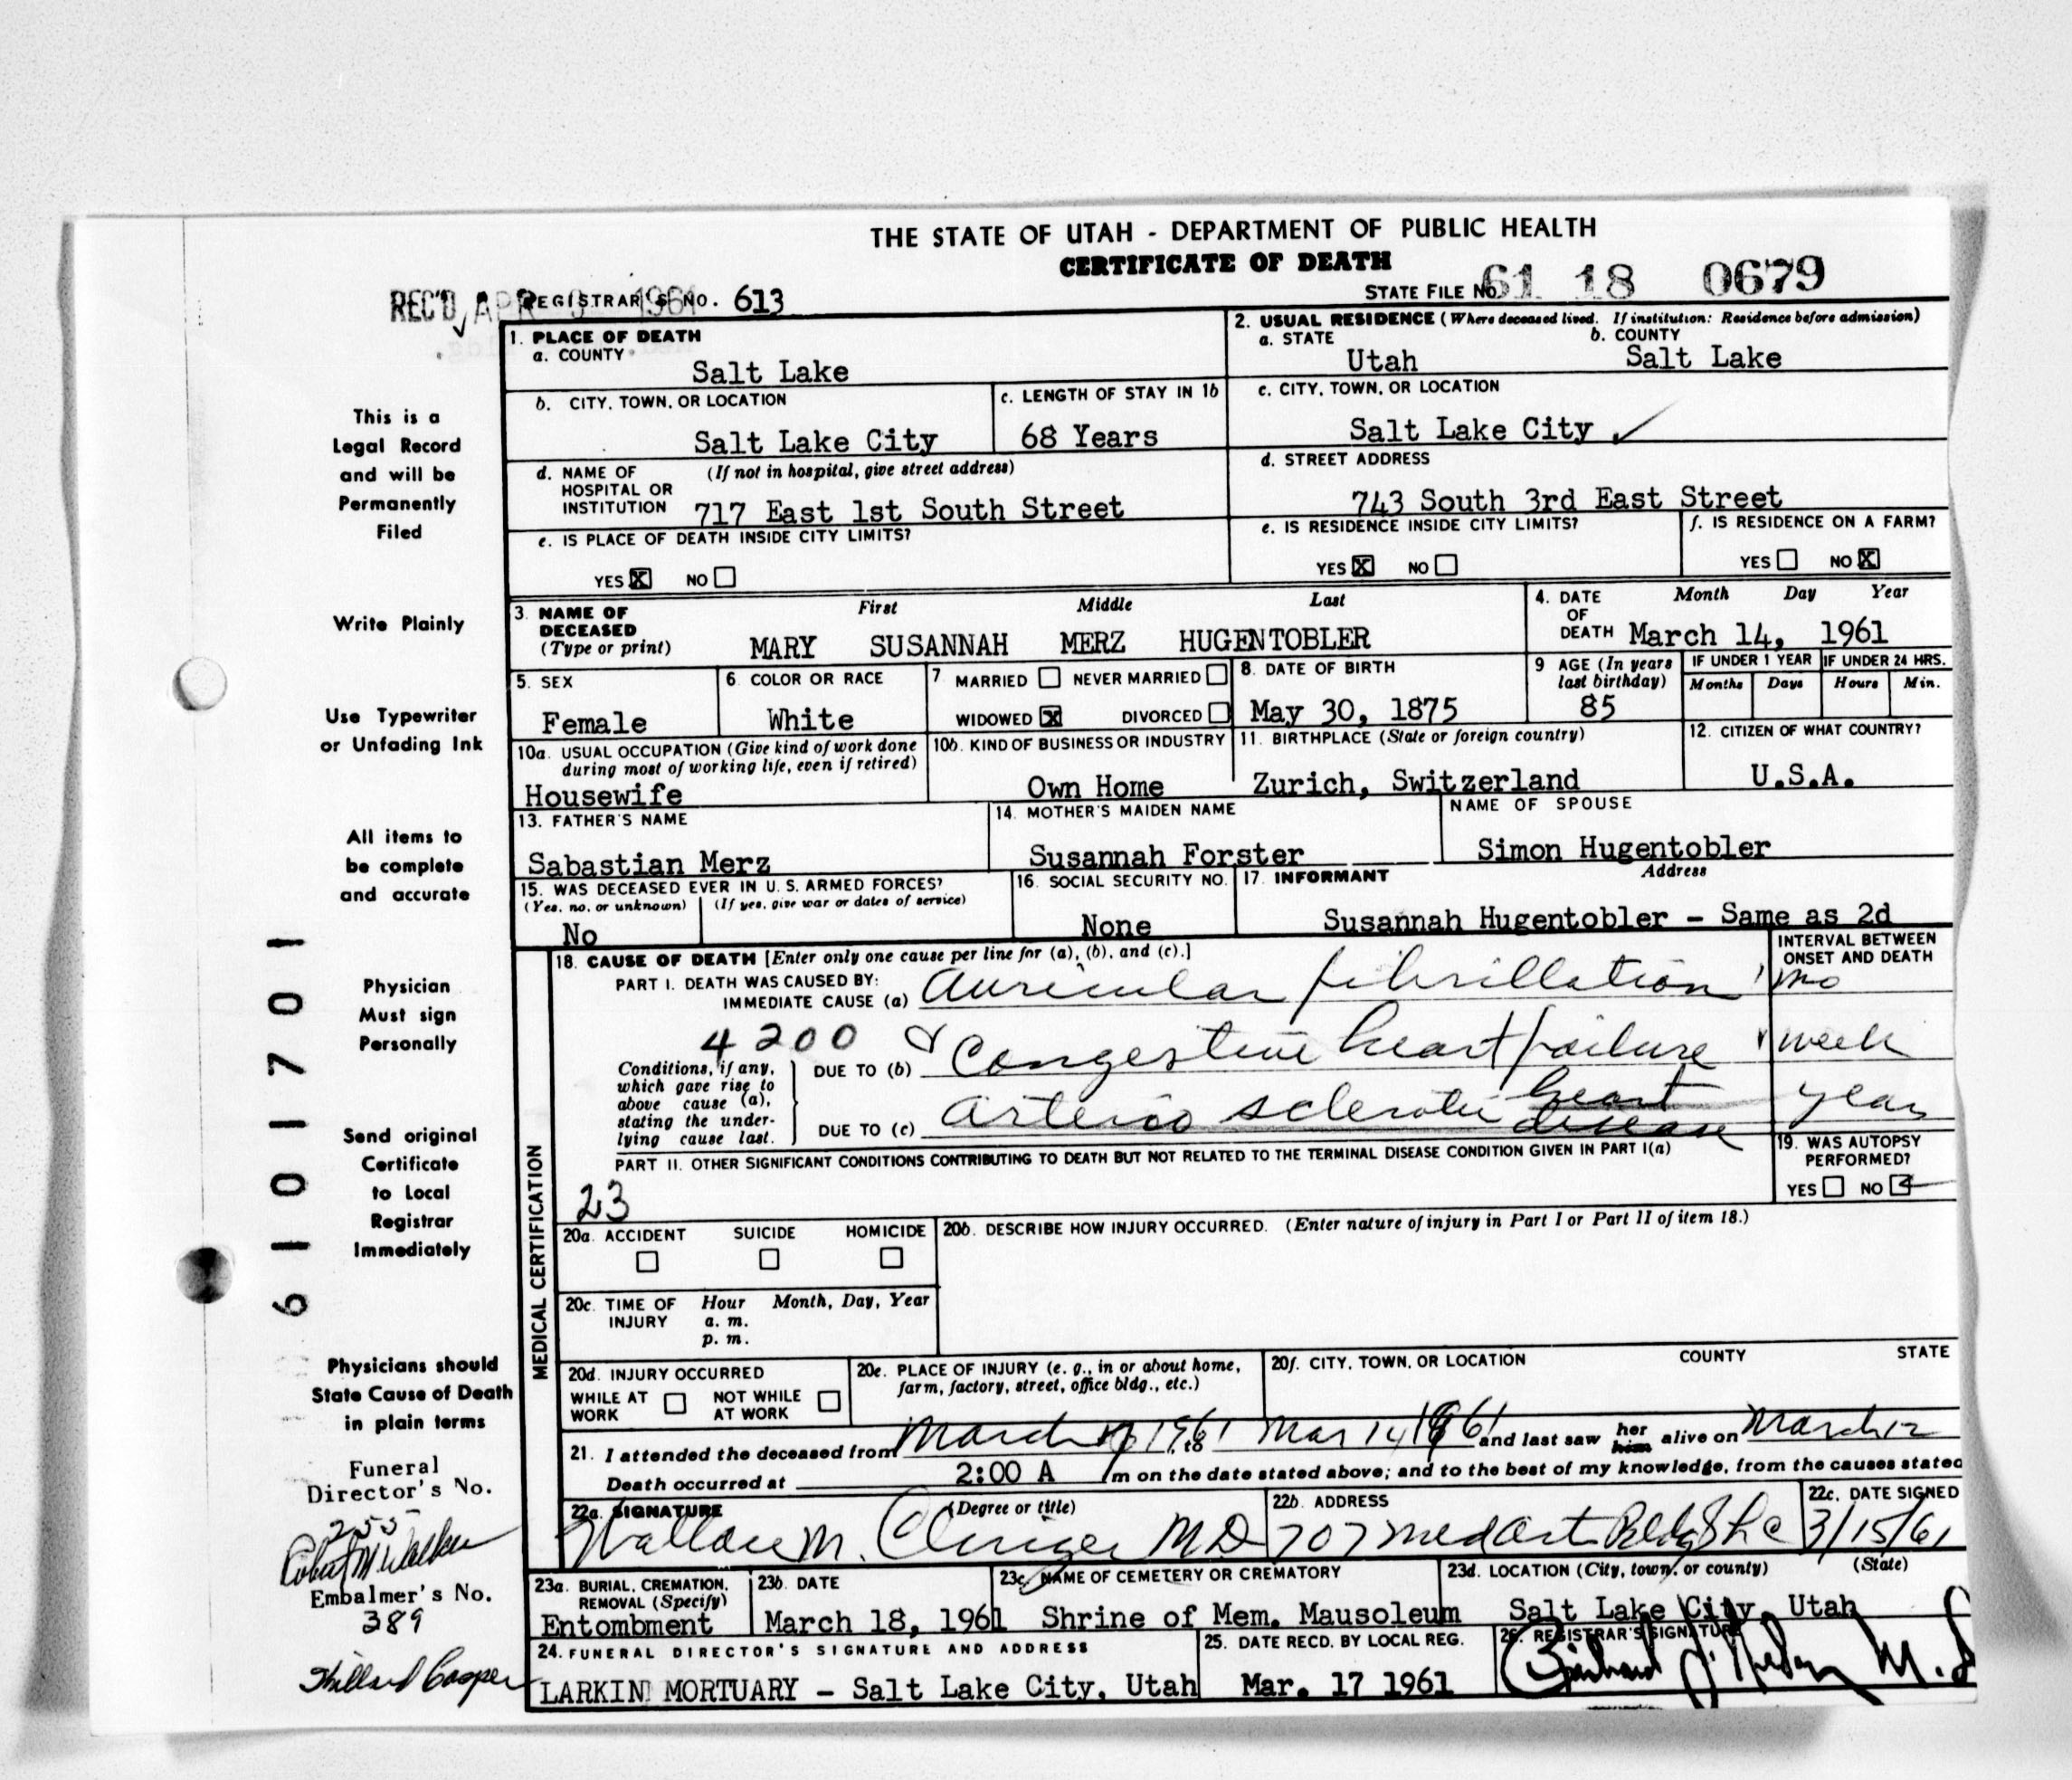 THE STATE OF UTAH - DEPARTMENT OF PUBLIC HEALTH
CERTIFICATE OF DEATH
REC'D APR 1961 REGISTRAR'S NO. 613
STATE FILE NO. 61 18 0679
1. PLACE OF DEATH
a. COUNTY
Salt Lake
2. USUAL RESIDENCE (Where deceased lived. If institution: Residence before admission)
a. STATE b. COUNTY
Utah Salt Lake
b. CITY, TOWN, OR LOCATION
Salt Lake City
c. LENGTH OF STAY IN 1b
68 Years
c. CITY, TOWN, OR LOCATION
Salt Lake City
d. NAME OF (If not in hospital, give street address)
HOSPITAL OR
INSTITUTION 717 East 1st South Street
d. STREET ADDRESS
743 South 3rd East Street
e. IS PLACE OF DEATH INSIDE CITY LIMITS?
YES X NO
e. IS RESIDENCE INSIDE CITY LIMITS?
YES X NO
f. IS RESIDENCE ON A FARM?
YES NO X
3. NAME OF First Middle Last
DECEASED
(Type or print) MARY SUSANNAH MERZ HUGENTOBLER
4. DATE Month Day Year
OF
DEATH March 14, 1961
5. SEX
Female
6. COLOR OR RACE
White
7 MARRIED NEVER MARRIED
WIDOWED X DIVORCED
8. DATE OF BIRTH
May 30, 1875
9 AGE (In years
last birthday)
85
IF UNDER 1 YEAR IF UNDER 24 HRS.
Months Days Hours Min.
10a. USUAL OCCUPATION (Give kind of work done
during most of working life, even if retired)
Housewife
10b. KIND OF BUSINESS OR INDUSTRY
Own Home
11. BIRTHPLACE (State or foreign country)
Zurich, Switzerland
12. CITIZEN OF WHAT COUNTRY?
U.S.A.
13. FATHER'S NAME
Sabastian Merz
14. MOTHER'S MAIDEN NAME
Susannah Forster
NAME OF SPOUSE
Simon Hugentobler
15. WAS DECEASED EVER IN U. S. ARMED FORCES?
(Yes, no, or unknown) (If yes, give war or dates of service)
No
16. SOCIAL SECURITY NO.
None
17. INFORMANT Address
Susannah Hugentobler - Same as 2d
18. CAUSE OF DEATH [Enter only one cause per line for (a), (b), and (c).]
INTERVAL BETWEEN
ONSET AND DEATH
PART I. DEATH WAS CAUSED BY:
IMMEDIATE CAUSE (a) Auricular fibrillation mo
4200
Conditions, if any,
which gave rise to
above cause (a),
stating the under-
lying cause last.
DUE TO (b) Congestive heart failure week
DUE TO (c) Arterio sclerotic heart disease years
PART II. OTHER SIGNIFICANT CONDITIONS CONTRIBUTING TO DEATH BUT NOT RELATED TO THE TERMINAL DISEASE CONDITION GIVEN IN PART I(a)
23
19. WAS AUTOPSY
PERFORMED?
YES NO
MEDICAL CERTIFICATION
20a. ACCIDENT SUICIDE HOMICIDE
20b. DESCRIBE HOW INJURY OCCURRED. (Enter nature of injury in Part I or Part II of item 18.)
20c. TIME OF Hour Month, Day, Year
INJURY a. m.
p. m.
20d. INJURY OCCURRED
WHILE AT NOT WHILE
WORK AT WORK
20e. PLACE OF INJURY (e. g., in or about home,
farm, factory, street, office bldg., etc.)
20f. CITY, TOWN, OR LOCATION COUNTY STATE
21. I attended the deceased from March 1961 to Mar 14 1961 and last saw her him alive on March 12
Death occurred at 2:00 A m on the date stated above; and to the best of my knowledge, from the causes stated
22a. SIGNATURE (Degree or title)
Wallace M. Clinger MD
22b. ADDRESS
707 Med Art Bldg SLC
22c. DATE SIGNED
3/15/61
23a. BURIAL, CREMATION,
REMOVAL (Specify)
Entombment
23b. DATE
March 18, 1961
23c. NAME OF CEMETERY OR CREMATORY
Shrine of Mem. Mausoleum
23d. LOCATION (City, town, or county) (State)
Salt Lake City, Utah
24. FUNERAL DIRECTOR'S SIGNATURE AND ADDRESS
LARKIN MORTUARY - Salt Lake City, Utah
25. DATE RECD. BY LOCAL REG.
Mar. 17 1961
26. REGISTRAR'S SIGNATURE
This is a
Legal Record
and will be
Permanently
Filed
Write Plainly
Use Typewriter
or Unfading Ink
All items to
be complete
and accurate
Physician
Must sign
Personally
Send original
Certificate
to Local
Registrar
Immediately
Physicians should
State Cause of Death
in plain terms
Funeral
Director's No.
255
Robert M Walker
Embalmer's No.
389
Cooper
6101701